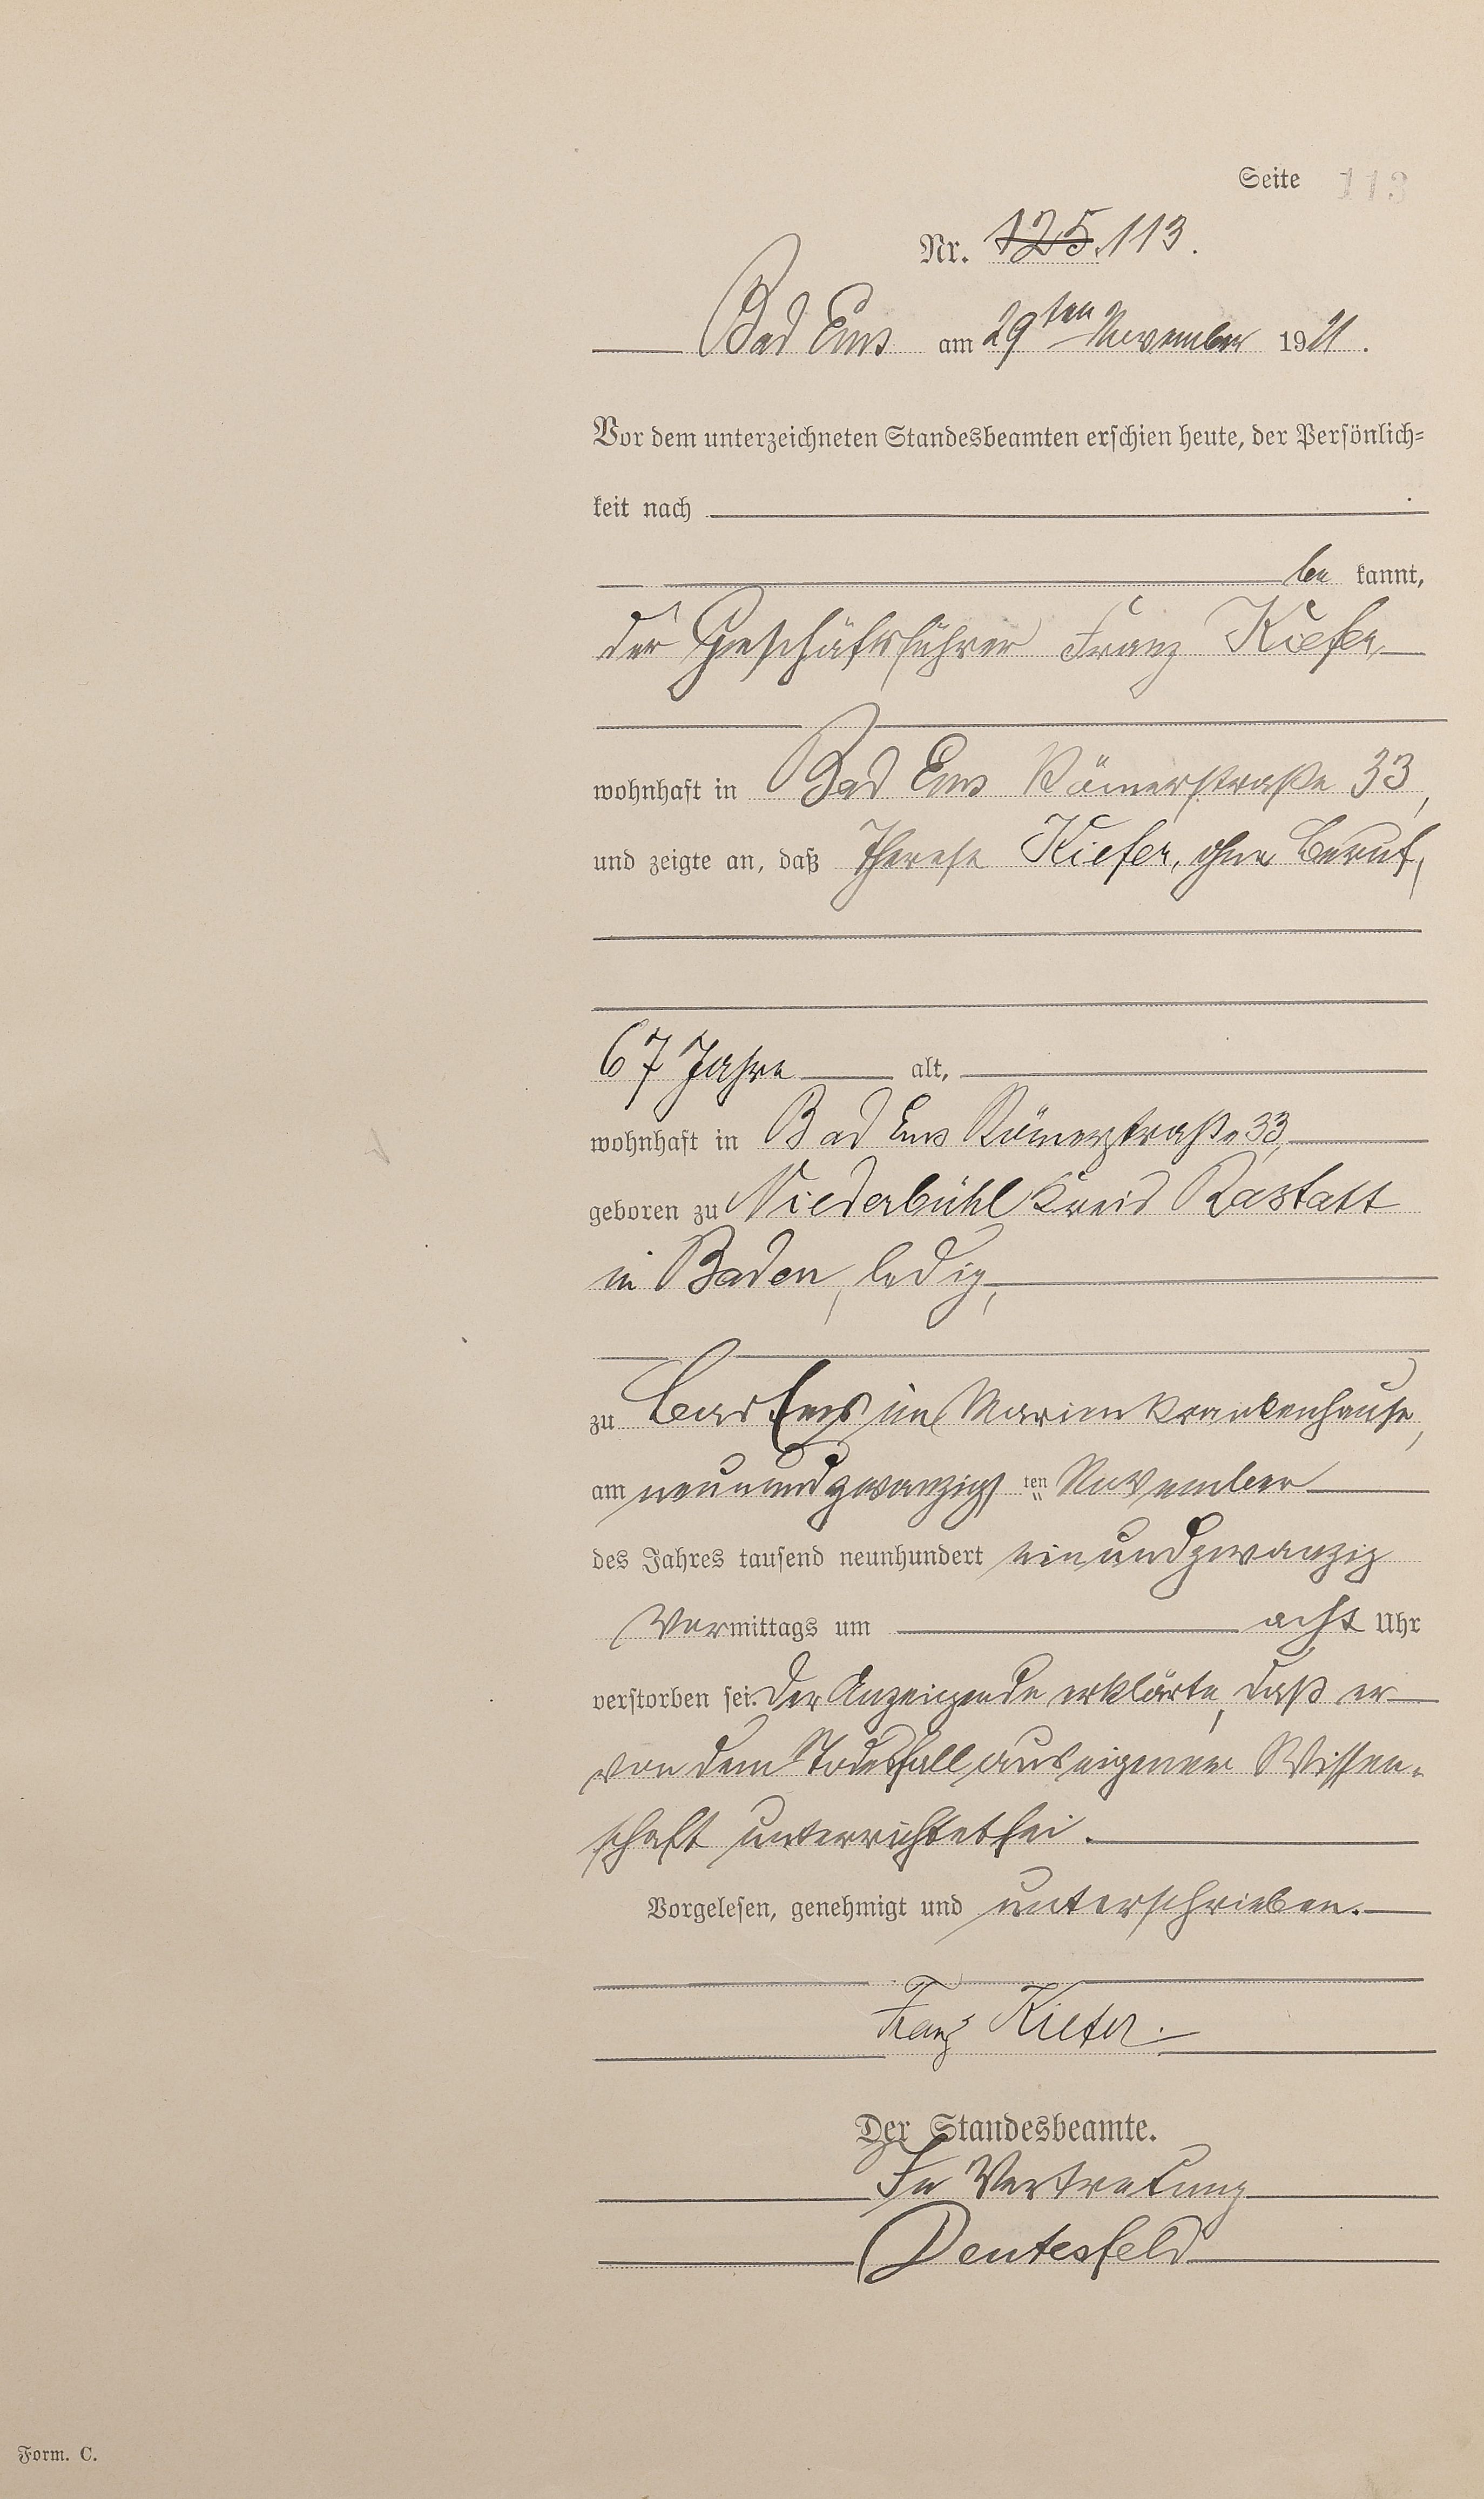 Seite 113
Nr. 125. 113.
Bad Ems am 29ten November 1921.
Vor dem unterzeichneten Standesbeamten erschien heute, der Persönlich-
keit nach
be kannt,
der Geschäftsführer Franz Kiefer,
wohnhaft in Bad Ems Römerstraße 33,
und zeigte an, daß Therese Kiefer, ohne Beruf,
67 Jahre alt,
wohnhaft in Bad Ems Römerstraße 33,
geboren zu Niederbühl Kreis Rastatt
in Baden, ledig,
zu Bad Ems im Marienkrankenhause,
am neunundzwanzigsten November
des Jahres tausend neunhundert einundzwanzig
Vormittags um acht Uhr
verstorben sei. Der Anzeigende erklärte, daß er
von dem Todesfall aus eigener Wissen-
schaft unterrichtet sei.
Vorgelesen, genehmigt und unterschrieben.
Franz Kiefer.
Der Standesbeamte.
In Vertretung
Deutesfeld
Form. C.